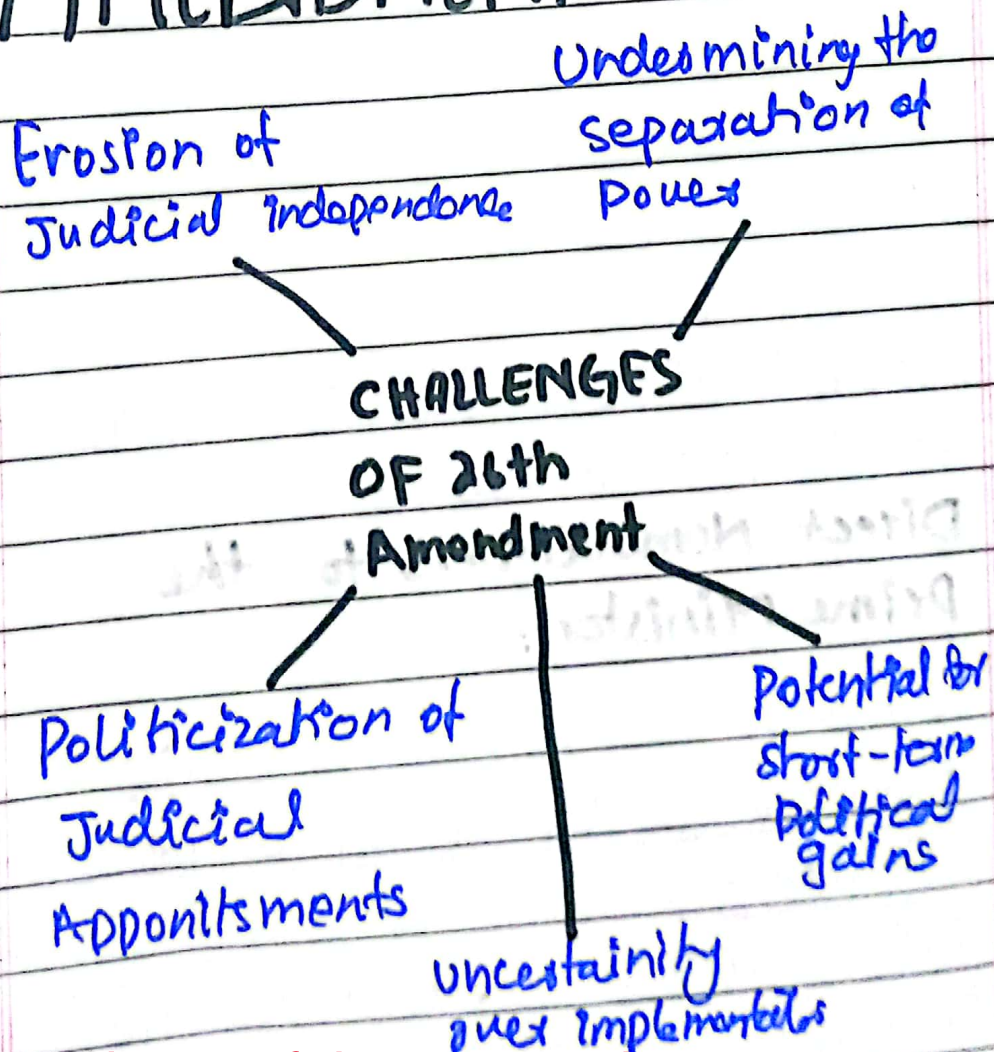 Erosion of
Judicial independence
Undermining the
separation of
power
CHALLENGES
OF 26th
Amendment
Politicization of
Judicial
Apponitsments
uncertainity
over
Potential for
short-term
political
gains